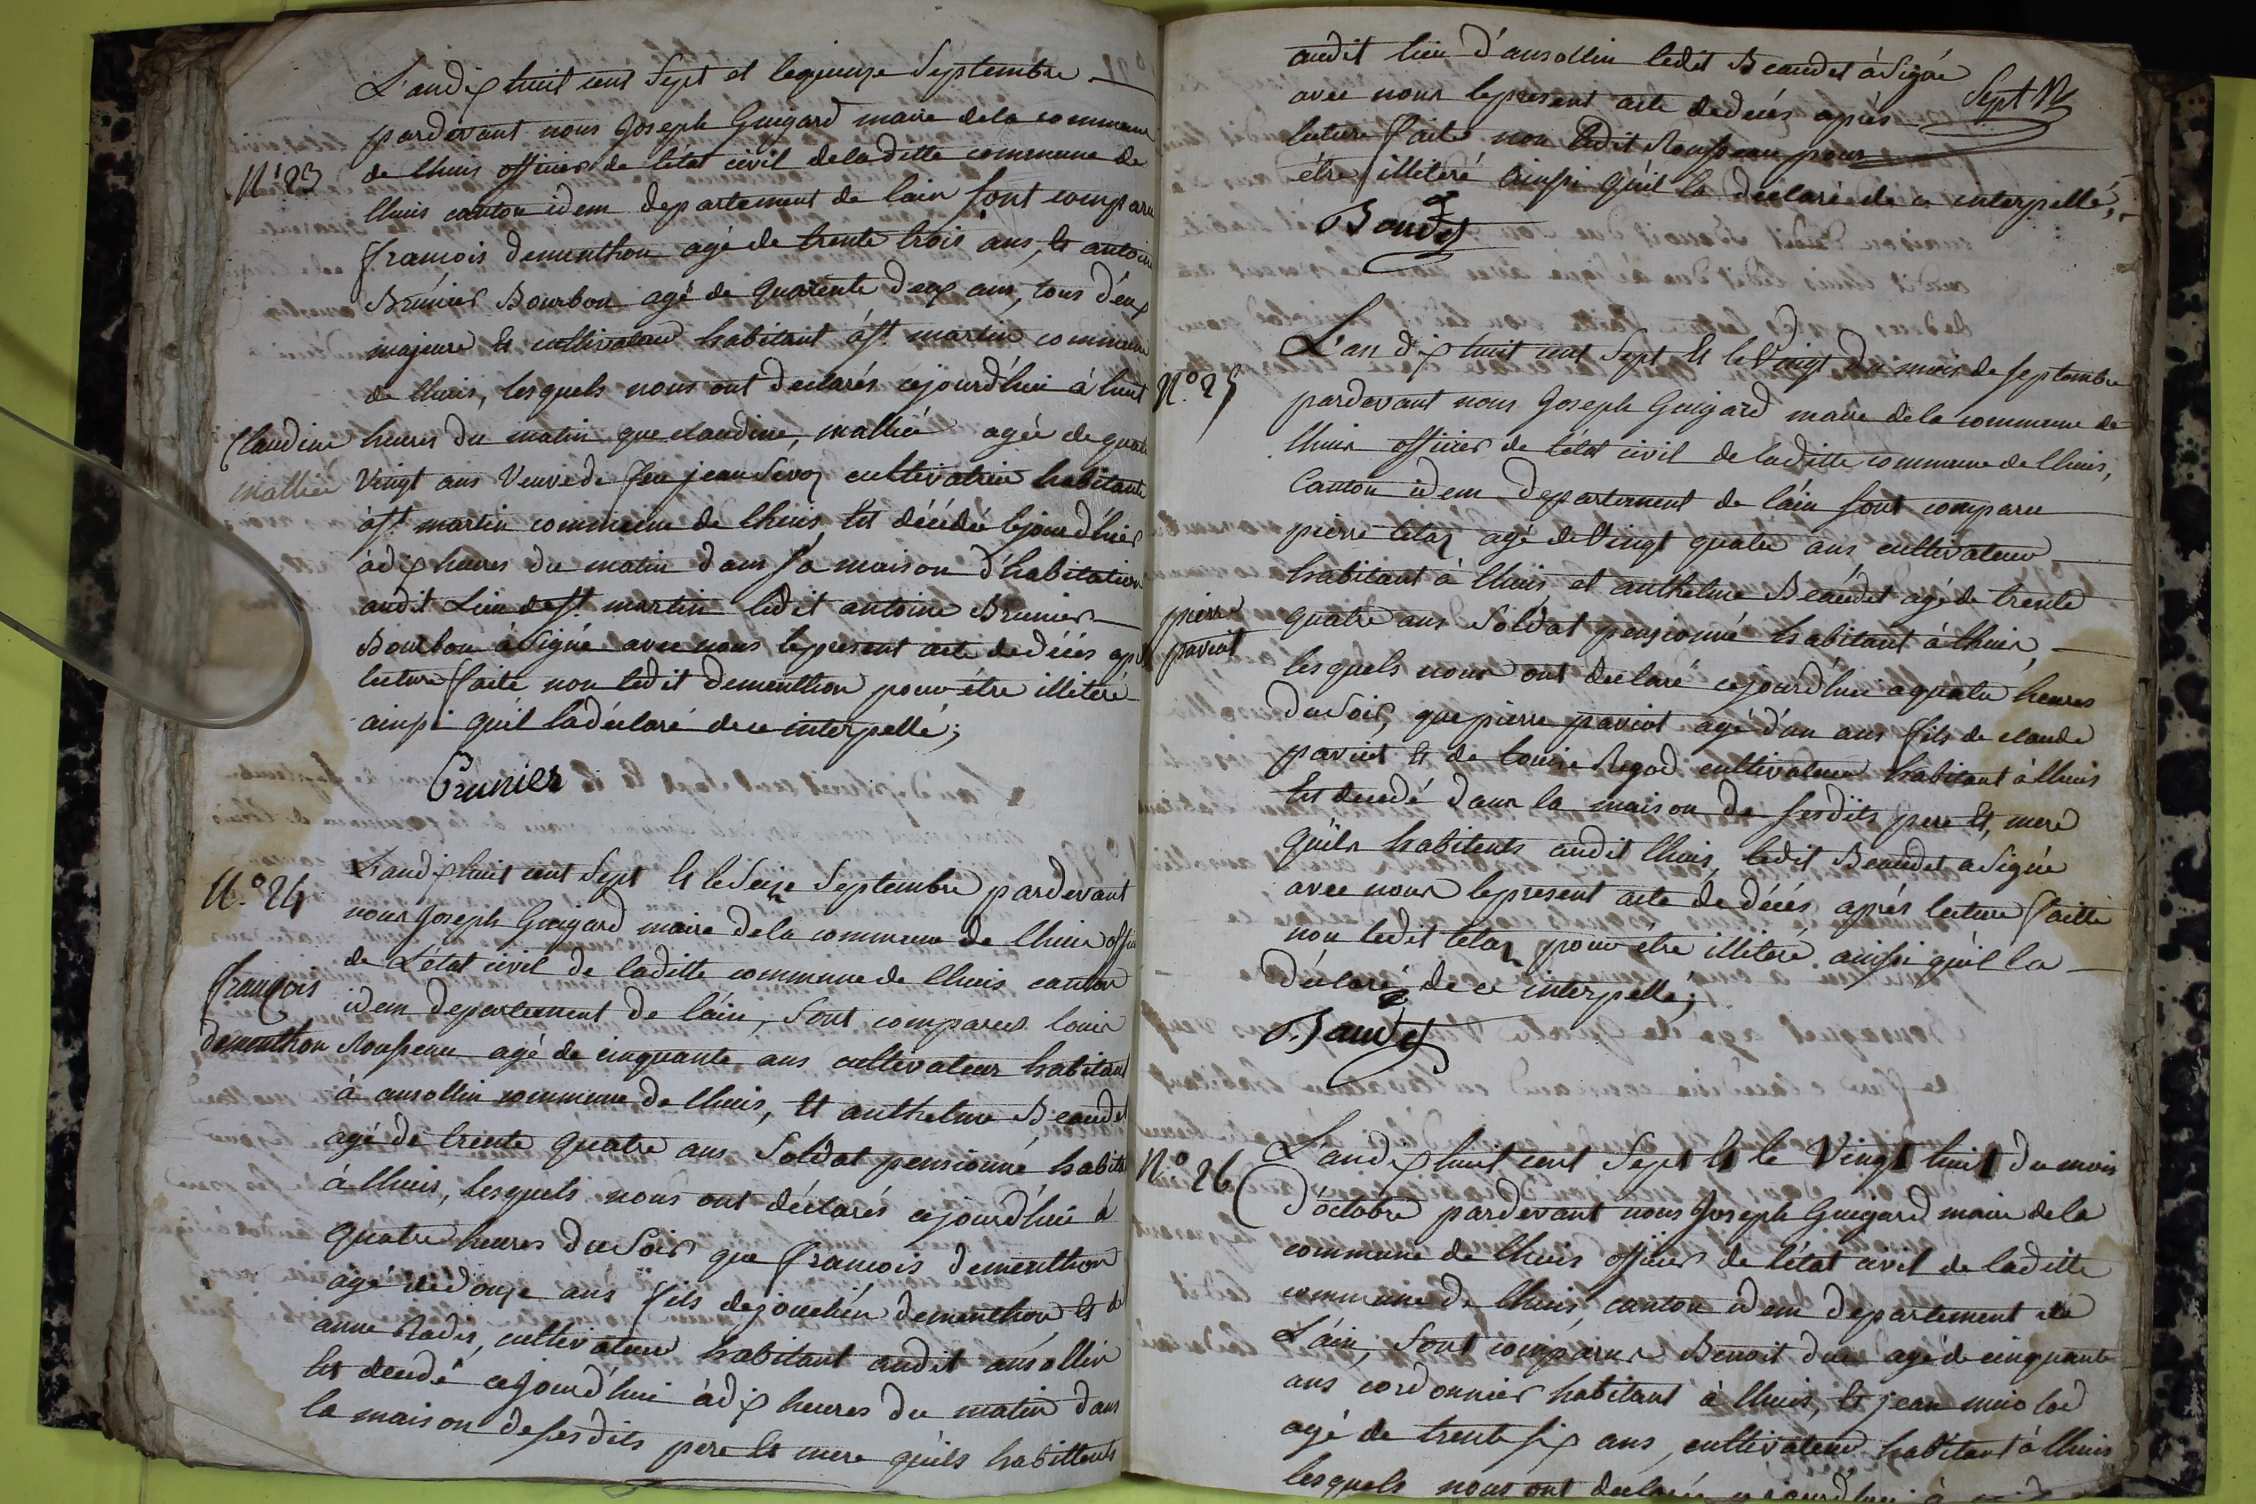 L'an dix huit cent sept et le quinze Septembre
pardevant nous Joseph Guigard maire de la commune
N.º 23
de lhuis officier de l'état civil de la ditte commune de
lhuis canton idem departement de lain sont comparu
françois dementhon agé de trente trois ans, et antoine
Brunier Bourbon agé de quarente deux ans, tous d'eux
majeurs et cultivateur habitant à st. martin commune
de lhuis, lesquels nous ont declarés cejourd'hui à huit
Claudine
heures du matin que claudine, malliée agée de quatre
malliée
vingt ans veuve de feu jean cultivatrice habitante
à st. martin commune de lhuis, est décédée lejourd'hier
à dix heures du matin dans sa maison d'habitation
audit Lieu de st. martin ledit antoine Brunier
Bourbon à signé avec nous le present acte de décés après
lecture faite non ledit dementhon pour être illiteré
ainsi qu'il la déclaré de ce interpellé;
Brunier
N.º 24
L'an dix huit cent sept et le seize Septembre pardevant
nous Joseph Guigard maire de la commune de lhuis
de L'état civil de laditte commune de lhuis canton
françois
idem departement de l'ain, sont comparus louis
dementhon
Rousseau agé de cinquante ans cultivateur habitant
à ansollin commune de lhuis, et anthelme Beaudet
agé de trente quatre ans soldat pensionné habitant
à lhuis, lesquels nous ont déclarés cejourd'hui à
quatre heures du soir que françois dementhon
agé de douze ans fils de dementhon et de
anne Rades, cultivateur habitant audit ansollin
est decedé cejourd'hui à dix heures du matin dans
la maison de sesdits pere et mere qu'ils habittents
audit lieu d'ansollin ledit Beaudet à signé
avec nous le present acte de decés après
Sept
lecture faite non ledit Rousseau pour
être illiteré ainsi qu'il la declaré de ce interpellé,
Baudet
L'an dix huit cent sept et le vingt du mois de septembre
N.º 25
pardevant nous Joseph Guigard maire de la commune de
lhuis officier de l'état civil de laditte commune de lhuis,
Canton idem departement de l'ain sont comparu
pierre agé de vingt quatre ans cultivateur
habitant à lhuis, et anthelme Beaudet agé de trente
pierre
quatre ans Soldat pensionné habitant à lhuis,
paviot
lesquels nous ont declaré cejourd'hui a quatre heures
du soir, que pierre paviot agé d'un ans fils de claude
paviot et de louise Regad cultivateur habitant à lhuis
est decedé dans la maison de sesdits pere et mere
qu'ils habitents audit lhuis, ledit Beaudet a signé
avec nous le present acte de décés aprés lecture faitte
non ledit pour être illiteré ainsi qu'il la
déclaré de ce interpellé;
Baudet
N.º 26
L'an dix huit cent sept et le vingt huit du mois
d'octobre pardevant nous Joseph Guigard maire de la
commune de lhuis officier de l'état civil de laditte
commune de lhuis, canton idem departement de
L'ain, sont comparus Benoit duc agé de cinquante
ans cordonnier habitant à lhuis, et jean
agé de trente six ans, cultivateur habitant à lhuis
lesquels nous ont